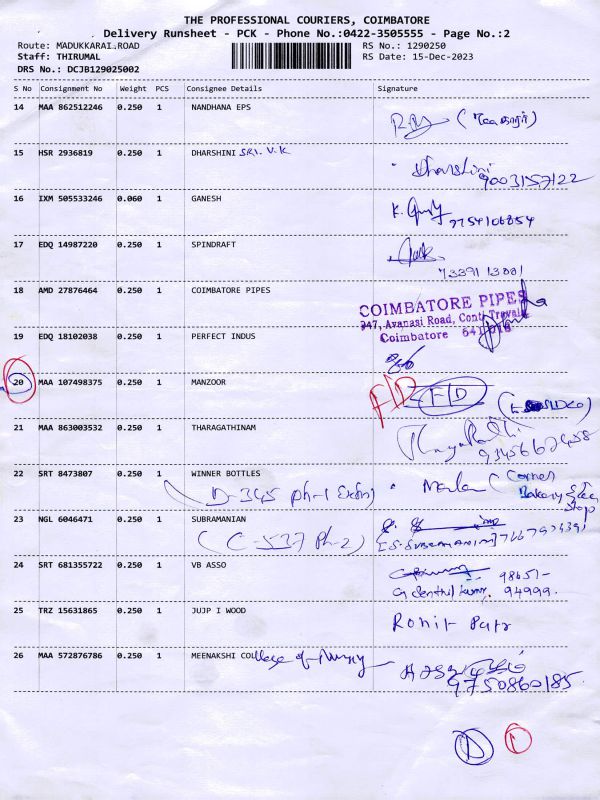 THE PROFESSIONAL COURIERS, COIMBATORE
Delivery Runsheet - PCK - Phone No.:0422-3505555 - Page No.:2
Route: MADUKKARAI ROAD RS No.: 1290250
Staff: THIRUMAL RS Date: 15-Dec-2023
DRS No.: DCJB129025002
S No Consignment No Weight PCS Consignee Details Signature
14 MAA 862512246 0.250 1 NANDHANA EPS
15 HSR 2936819 0.250 1 DHARSHINI SRI. V.K Dharshini
9003157122
16 IXM 505533246 0.060 1 GANESH K.
9754106854
17 EDQ 14987220 0.250 1 SPINDRAFT
73391 13001
18 AMD 27876464 0.250 1 COIMBATORE PIPES COIMBATORE PIPES
347, Avanasi Road, Cont. Travels
Coimbatore 641 018
19 EDQ 18102038 0.250 1 PERFECT INDUS
20 MAA 107498375 0.250 1 MANZOOR F/D F/D
21 MAA 863003532 0.250 1 THARAGATHINAM
22 SRT 8473807 0.250 1 WINNER BOTTLES
D-345 Ph-1 (Corner
Bakery
Stop
23 NGL 6046471 0.250 1 SUBRAMANIAN
(C-537 Ph-2) E.S. SUBRAMANIM
24 SRT 681355722 0.250 1 VB ASSO 98651-
G Senthil Kumar. 94999.
25 TRZ 15631865 0.250 1 JUJP I WOOD Rohit
26 MAA 572876786 0.250 1 MEENAKSHI College of Nursing
9750860185
D